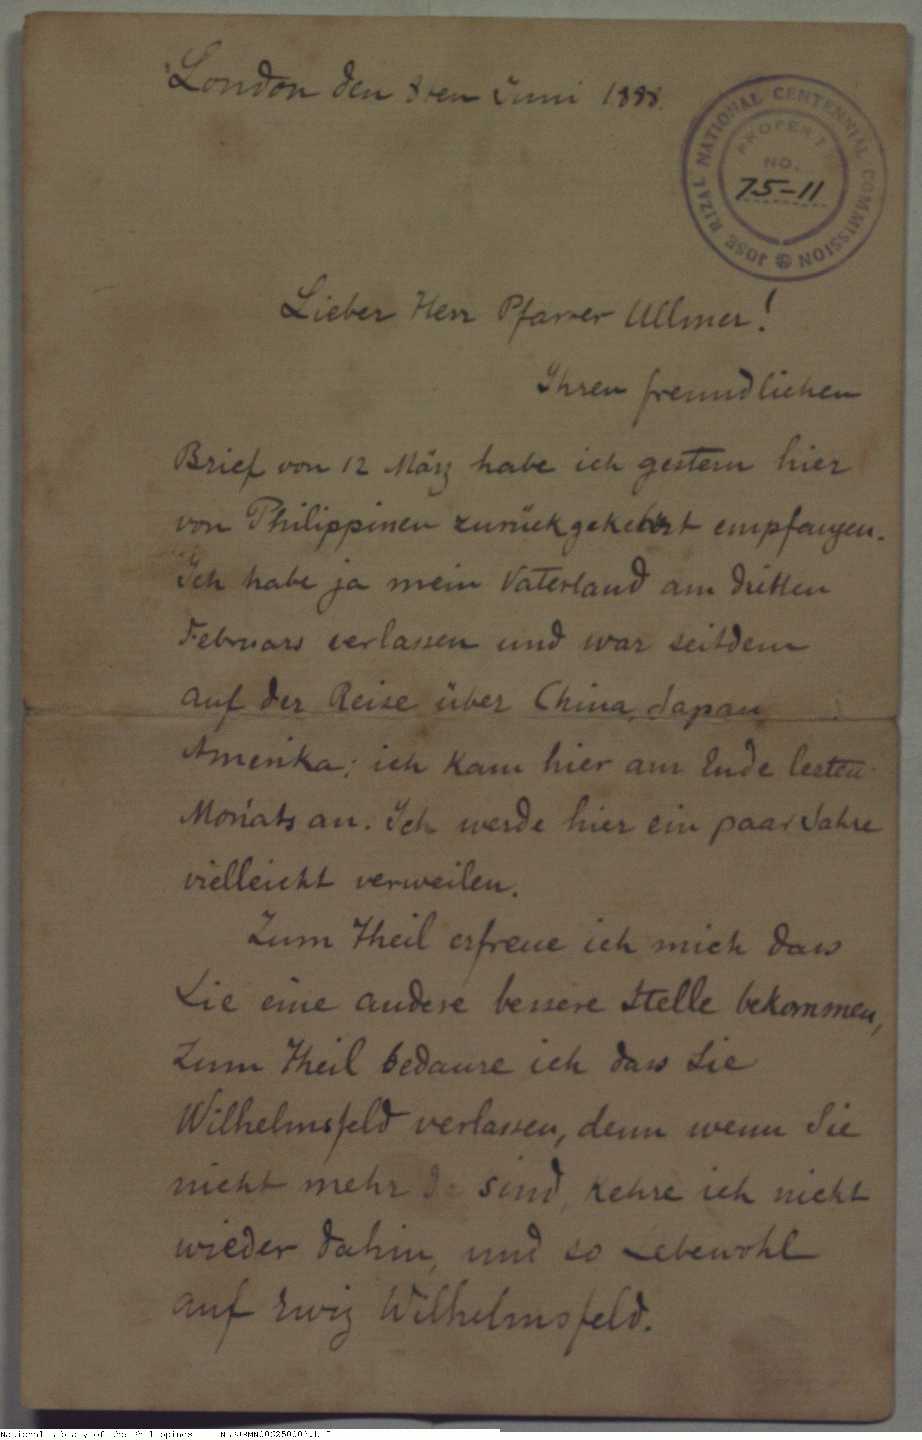 London den 8ten Juni 1888.
JOSE RIZAL NATIONAL CENTENNIAL COMMISSION
PROPERTY
NO.
75-11
Lieber Herr Pfarrer Ullmer!
Ihren freundlichen
Brief von 12 März habe ich gestern hier
von Philippinen zurückgekehrt empfangen.
Ich habe ja mein Vaterland am dritten
Februars verlassen und war seitdem
auf der Reise über China, Japan
Amerika; ich kam hier am Ende lezten
Monats an. Ich werde hier ein paar Jahre
vielleicht verweilen.
Zum Theil erfreue ich mich dass
Sie eine andere bessere Stelle bekommen,
Zum Theil bedaure ich dass Sie
Wilhelmsfeld verlassen, denn wenn Sie
nicht mehr da sind, kehre ich nicht
wieder dahin, und so Lebewohl
auf Ewig Wilhelmsfeld.
National Library of the Philippines